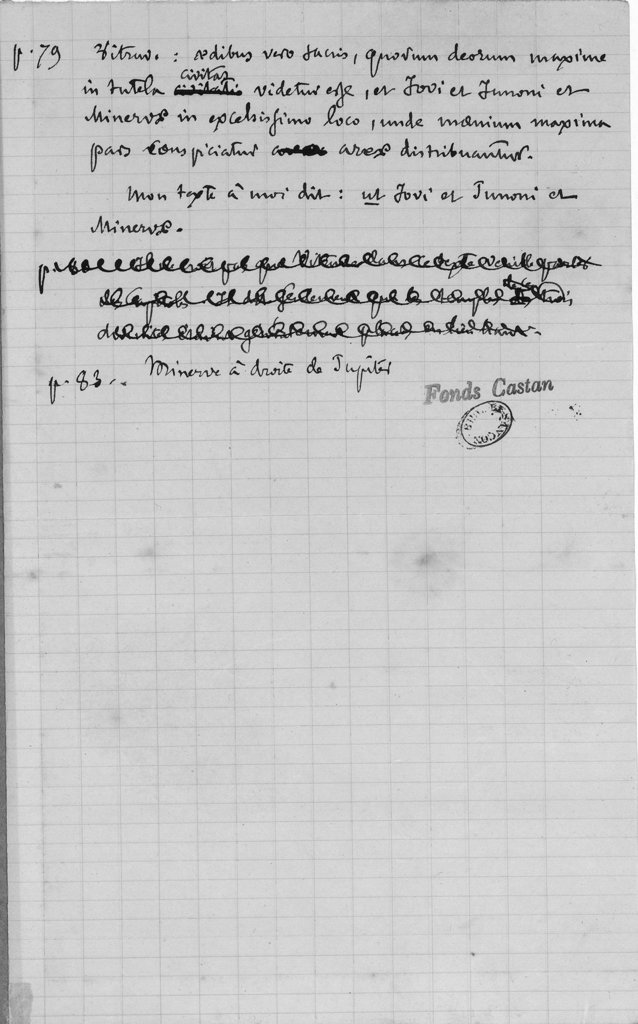 p. 79 Vitruv. : ædibus vero sacris, quorum deorum maxime
in tutela civitas videtur esse, et Jovi et Junoni et
Minervæ in excelsissimo loco, unde mœnium maxima
pars conspiciatur areæ distribuantur.
Mon texte à moi dit : ut Jovi et Junoni et
Minervæ.
p. 83. Minerve à droite de Jupiter
Fonds Castan
BIBL. BESANÇON